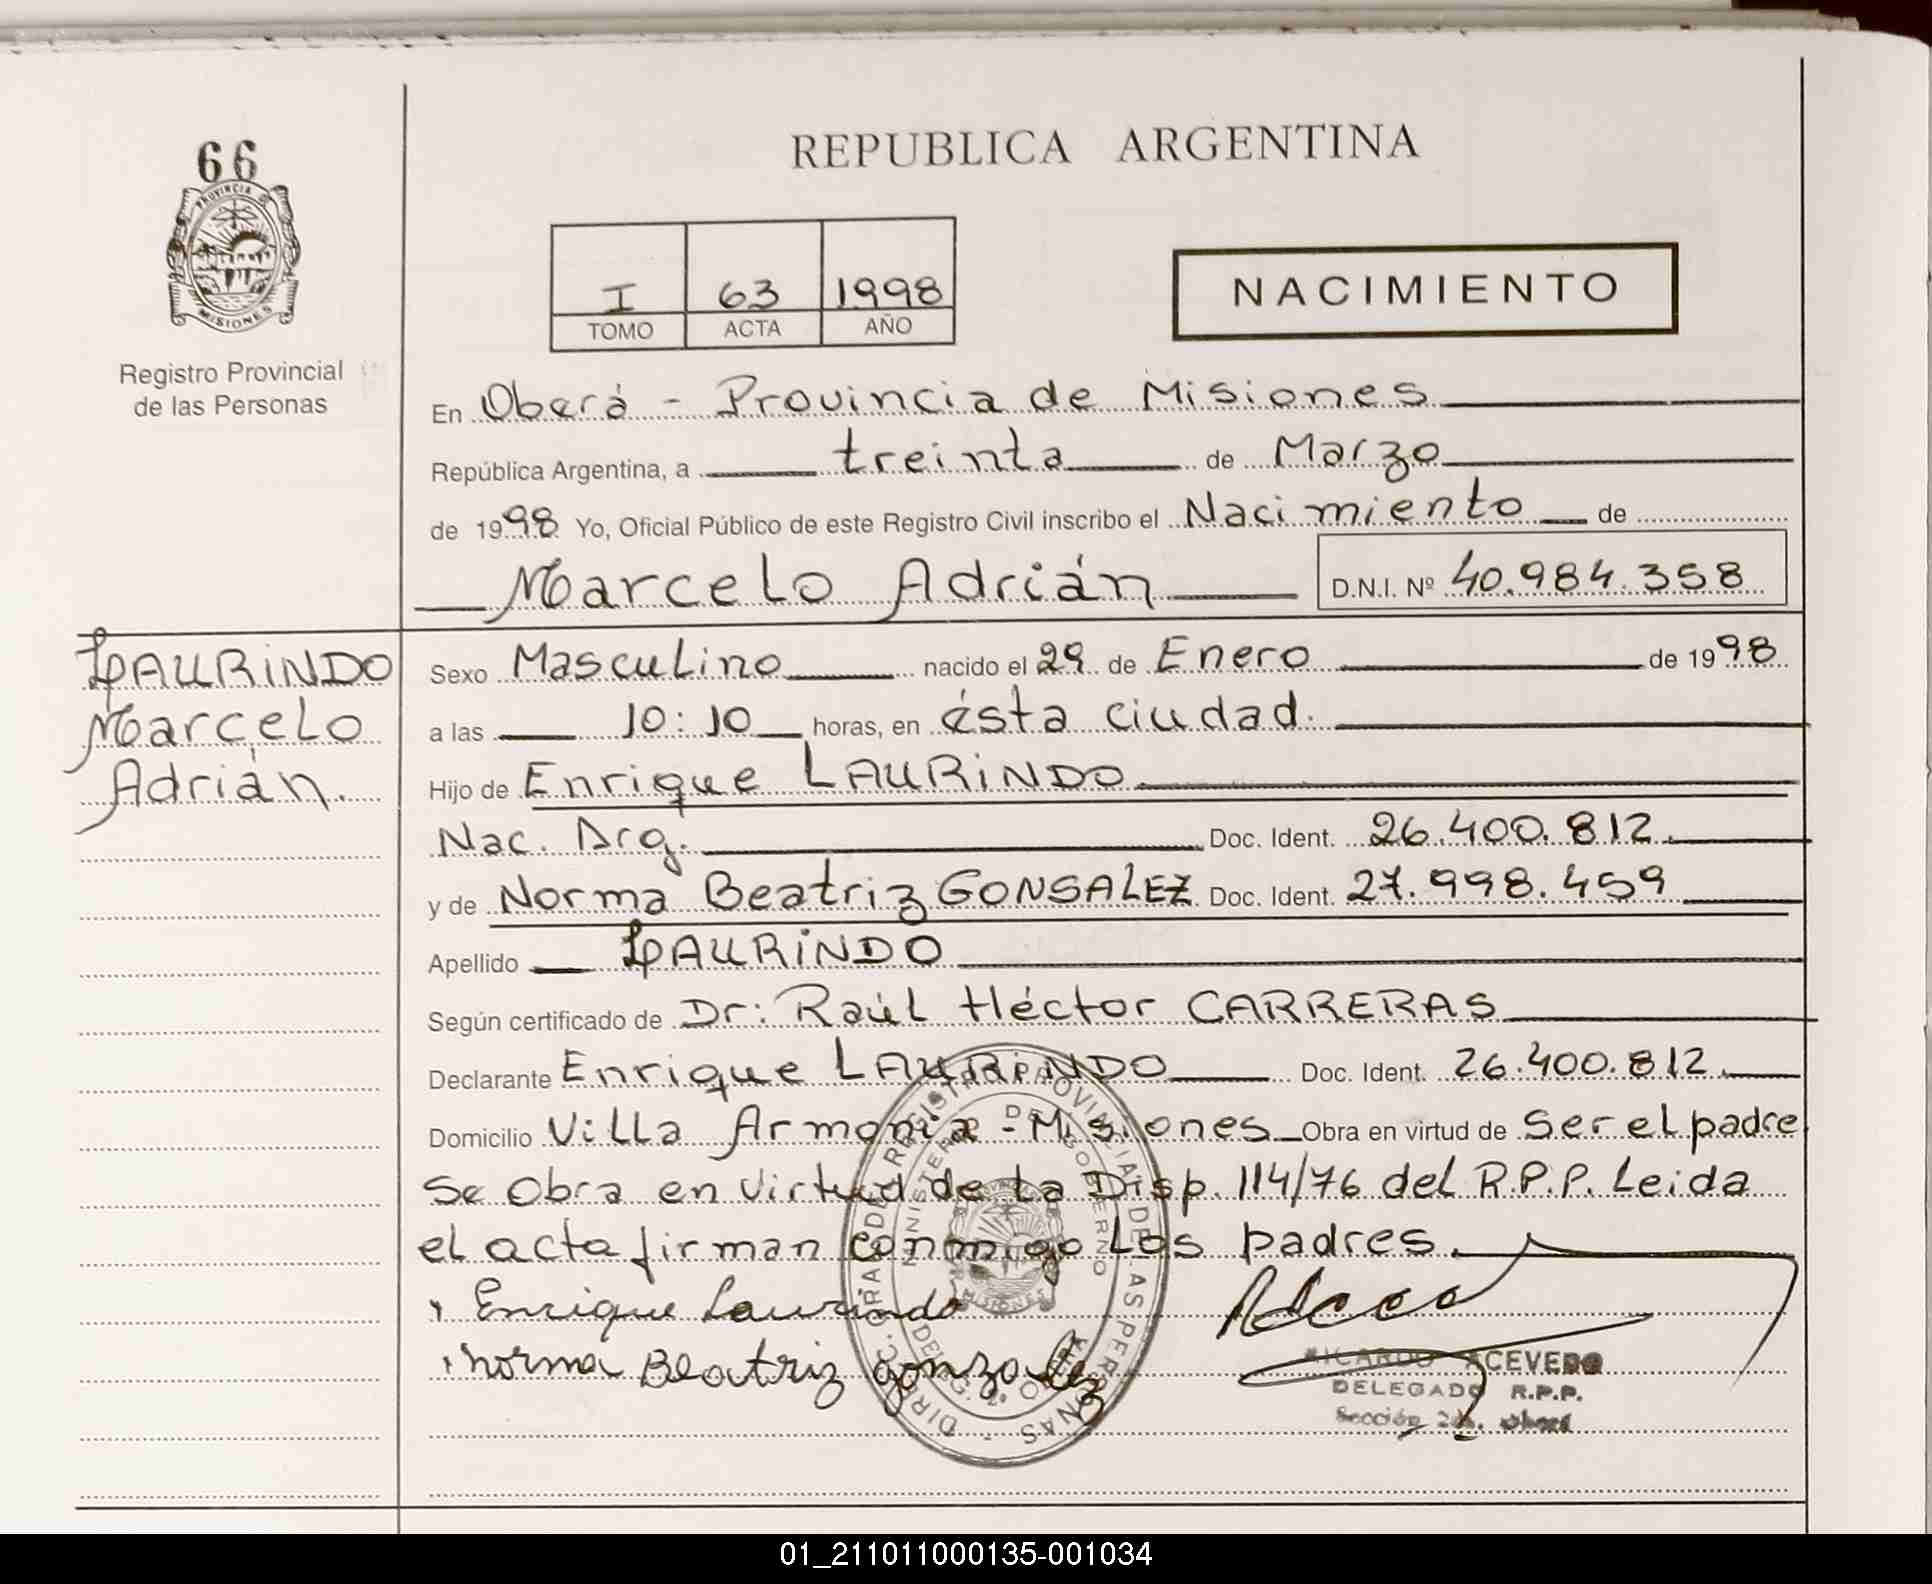 66
PROVINCIA DE
MISIONES
Registro Provincial
de las Personas
REPUBLICA ARGENTINA
I 63 1998
TOMO ACTA AÑO
NACIMIENTO
En Oberá - Provincia de Misiones
República Argentina, a treinta de Marzo
de 1998 Yo, Oficial Público de este Registro Civil inscribo el Nacimiento de
Marcelo Adrián D.N.I. Nº 40.984.358
LAURINDO
Marcelo
Adrián.
Sexo Masculino nacido el 29 de Enero de 1998
a las 10:10 horas, en ésta ciudad.
Hijo de Enrique LAURINDO
Nac. Arg. Doc. Ident. 26.400.812.
y de Norma Beatriz GONSALEZ Doc. Ident. 27.998.459
Apellido LAURINDO
Según certificado de Dr: Raúl Héctor CARRERAS
Declarante Enrique LAURINDO Doc. Ident. 26.400.812.
Domicilio Villa Armonia - Misiones Obra en virtud de Ser el padre
Se Obra en virtud de La Disp. 114/76 del R.P.P. Leida
el acta firman conmigo Los padres.
Enrique Laurindo
Norma Beatriz gonzalez
DIREC. GRAL. DEL REGISTRO PROVINCIAL DE LAS PERSONAS
MINISTERIO DE GOBIERNO
MISIONES
DELEG. 2ª OBERA
RICARDO ACEVEDO
DELEGADO R.P.P.
Sección 2a. Oberá
01_211011000135-001034